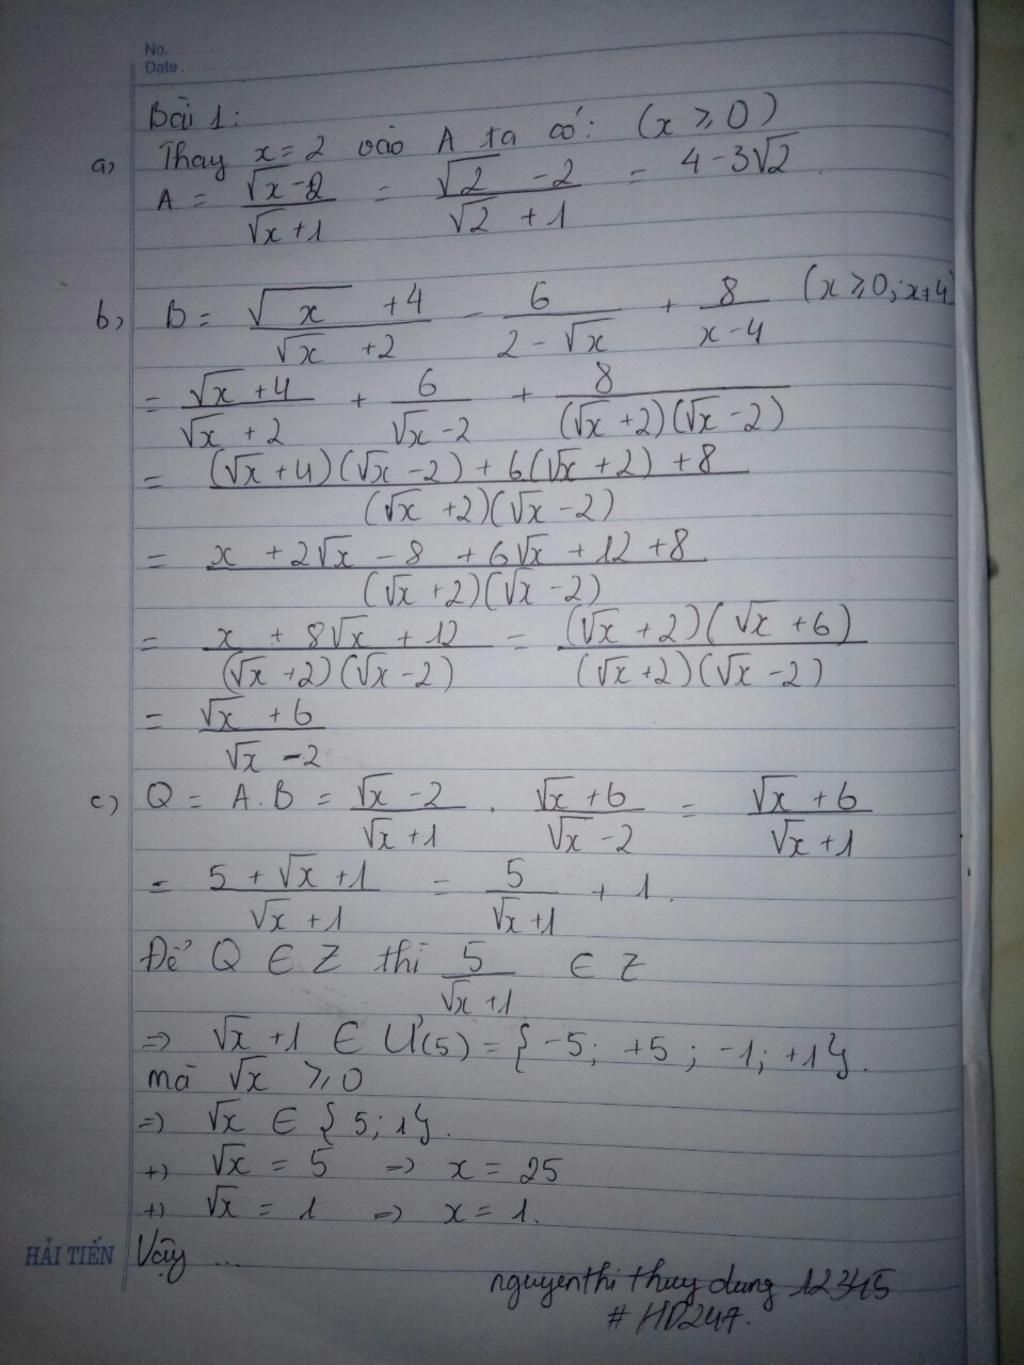 No.
Date
Bài 1:
a) Thay x = 2 vào A ta có: (x ≥ 0)
A = (√x - 2)/(√x + 1) = (√2 - 2)/(√2 + 1) = 4 - 3√2
b) B = (√x + 4)/(√x + 2) - 6/(2 - √x) + 8/(x - 4) (x ≥ 0; x ≠ 4)
= (√x + 4)/(√x + 2) + 6/(√x - 2) + 8/((√x + 2)(√x - 2))
= ((√x + 4)(√x - 2) + 6(√x + 2) + 8)/((√x + 2)(√x - 2))
= (x + 2√x - 8 + 6√x + 12 + 8)/((√x + 2)(√x - 2))
= (x + 8√x + 12)/((√x + 2)(√x - 2)) = ((√x + 2)(√x + 6))/((√x + 2)(√x - 2))
= (√x + 6)/(√x - 2)
c) Q = A.B = (√x - 2)/(√x + 1) . (√x + 6)/(√x - 2) = (√x + 6)/(√x + 1)
= (5 + √x + 1)/(√x + 1) = 5/(√x + 1) + 1.
Để Q ∈ Z thì 5/(√x + 1) ∈ Z
=> √x + 1 ∈ Ư(5) = {-5; +5; -1; +1}.
mà √x ≥ 0
=> √x ∈ {5; 1}.
+) √x = 5 => x = 25
+) √x = 1 => x = 1.
HẢI TIẾN Vậy ...
nguyenthi thuy dung 12345
# HD247.